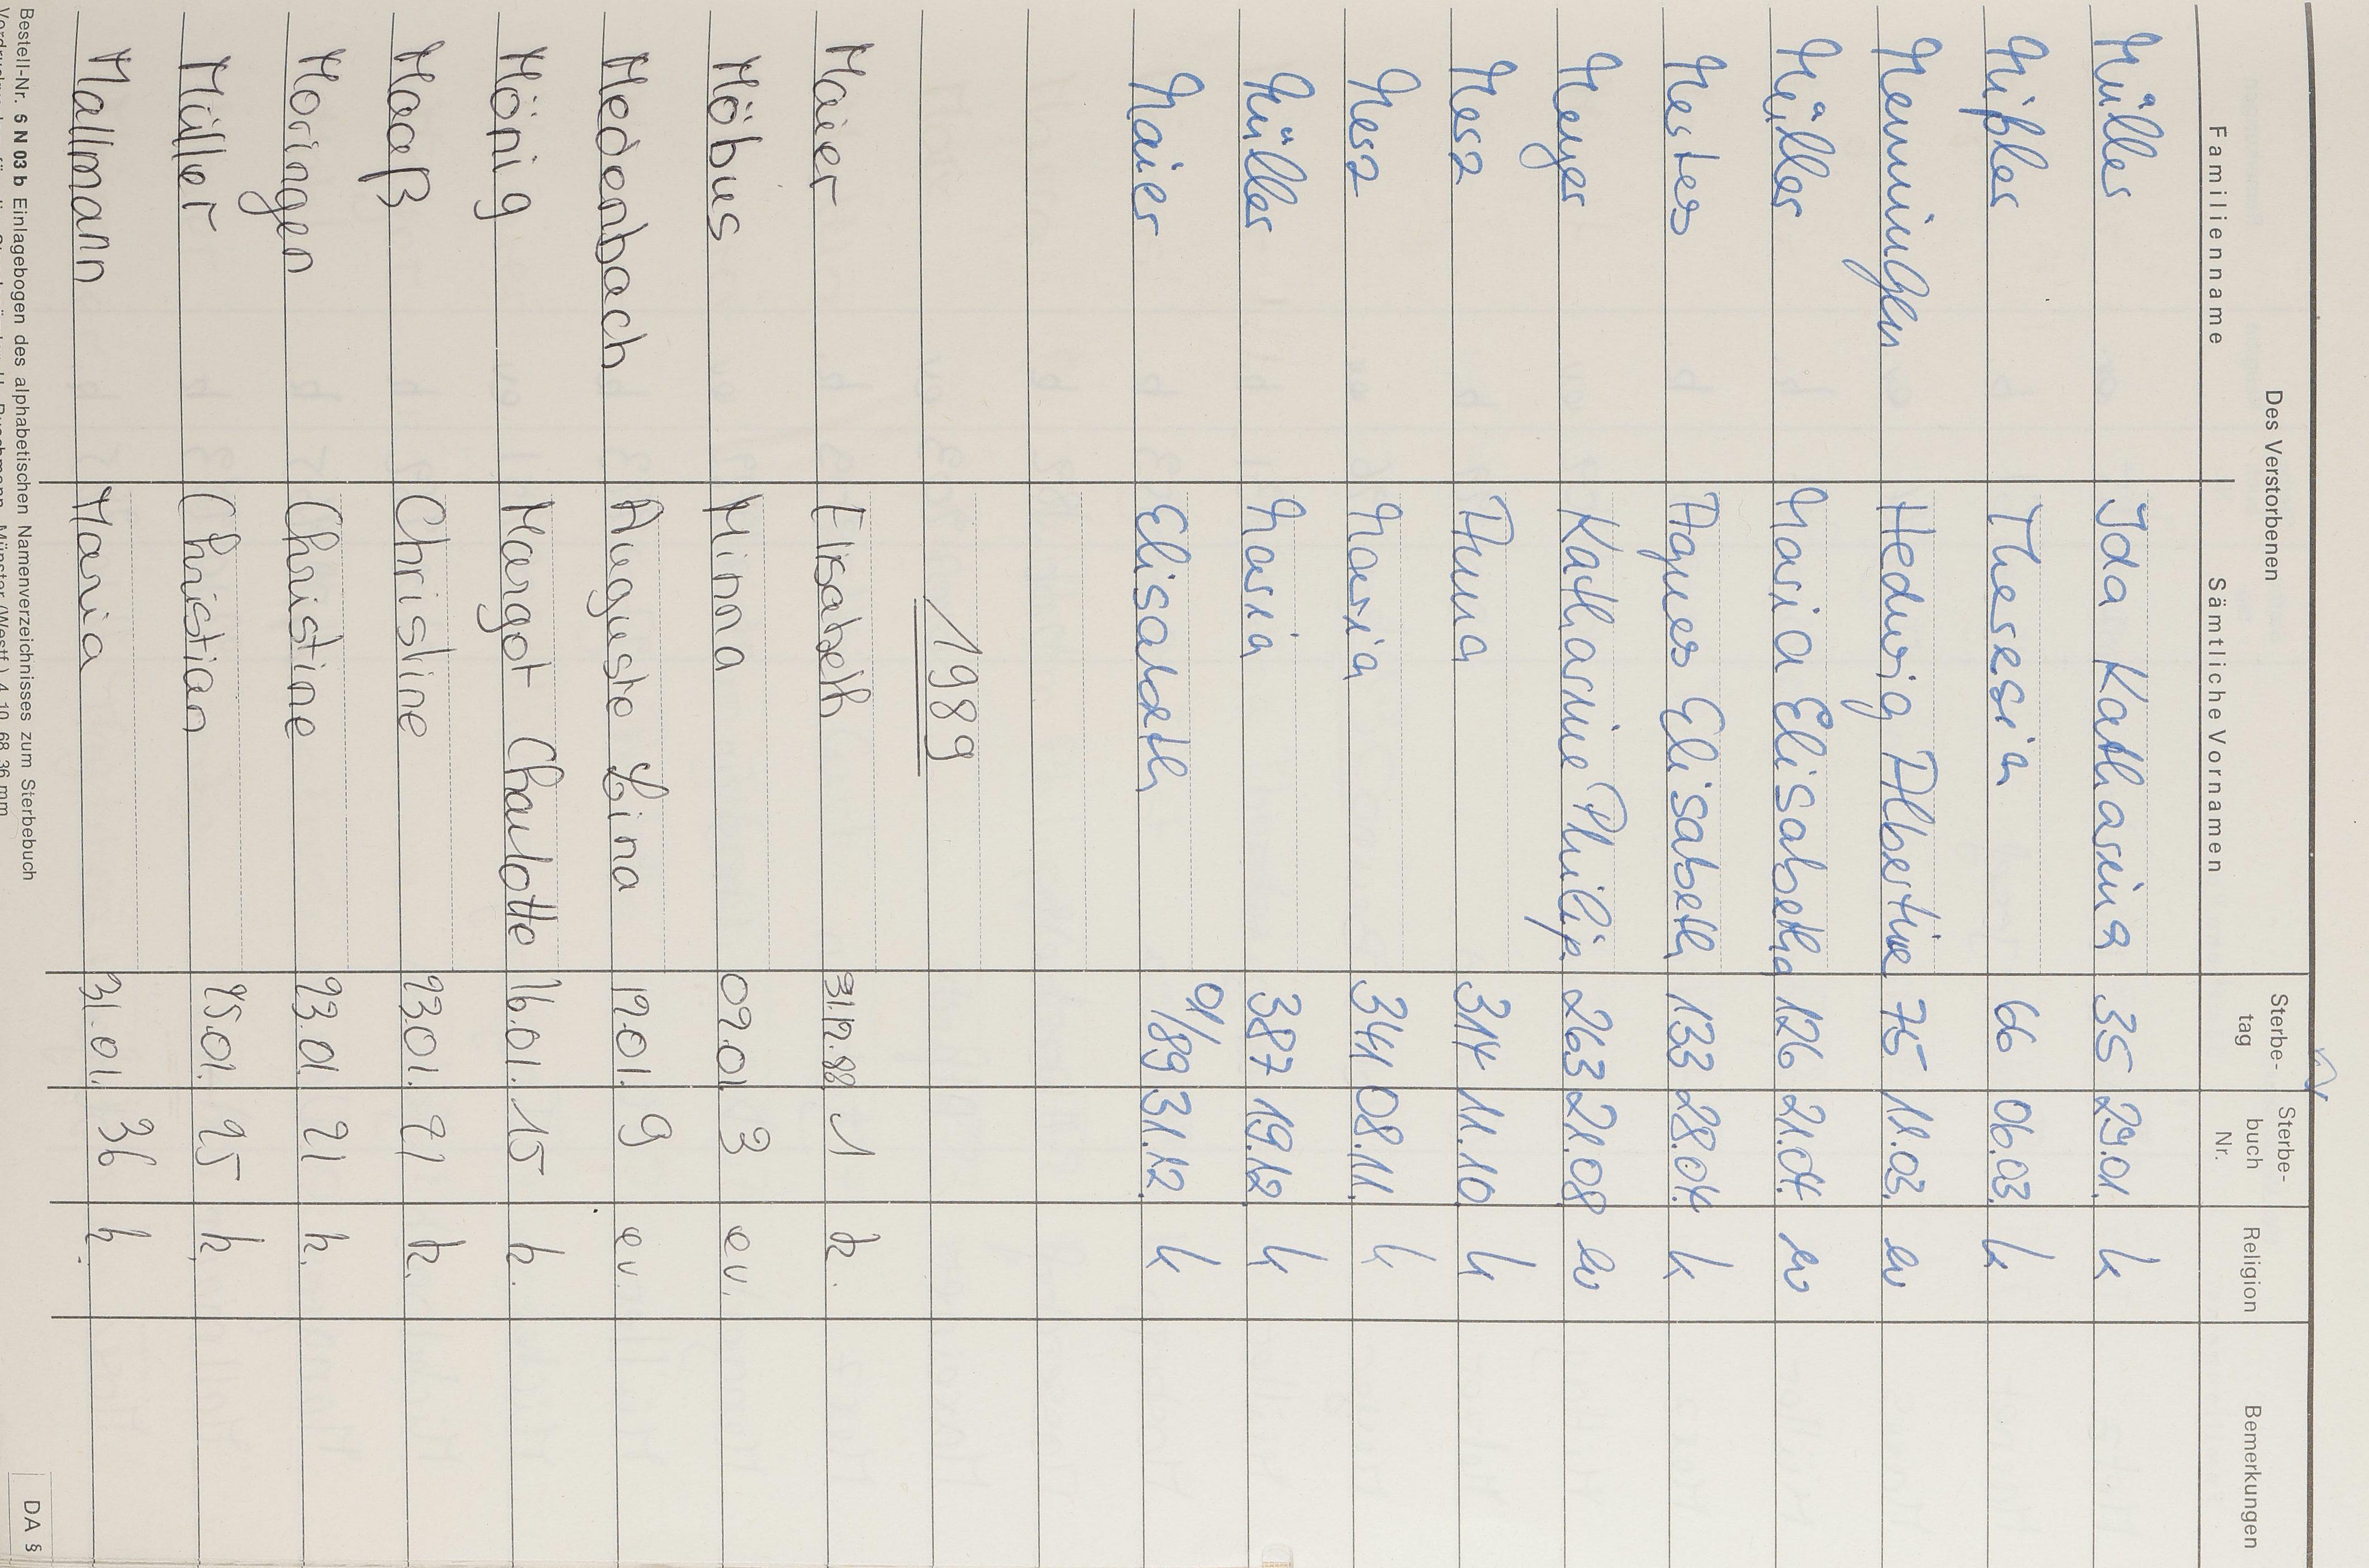 Des Verstorbenen
Familienname Sämtliche Vornamen Sterbe-tag Sterbe-buch Nr. Religion Bemerkungen
Müller Ida Katharina 35 29.01. k
Mißler Theresia 66 06.03. k
Menningen Hedwig Albertine 75 11.03. ev
Müller Maria Elisabetha 126 21.04. ev
Mertes Agnes Elisabeth 133 28.04. k
Meyer Katharine Philip. 263 21.08 ev
Merz Anna 314 11.10. k
Merz Maria 341 08.11. k
Müller Maria 387 19.12. k
Maier Elisabeth 01/89 31.12. k
1989
Maier Elisabeth 31.12.88 1 k.
Möbus Minna 02.01. 3 ev.
Medenbach Auguste Lina 12.01. 9 ev.
Mönig Margot Charlotte 16.01. 15 k.
Maaß Christine 23.01. 21 k.
Moringen Christine 23.01. 21 k.
Müller Christian 25.01. 25 k.
Mallmann Maria 31.01. 36 k.
Bestell-Nr. 5 N 03 b Einlagebogen des alphabetischen Namenverzeichnisses zum Sterbebuch
DA §